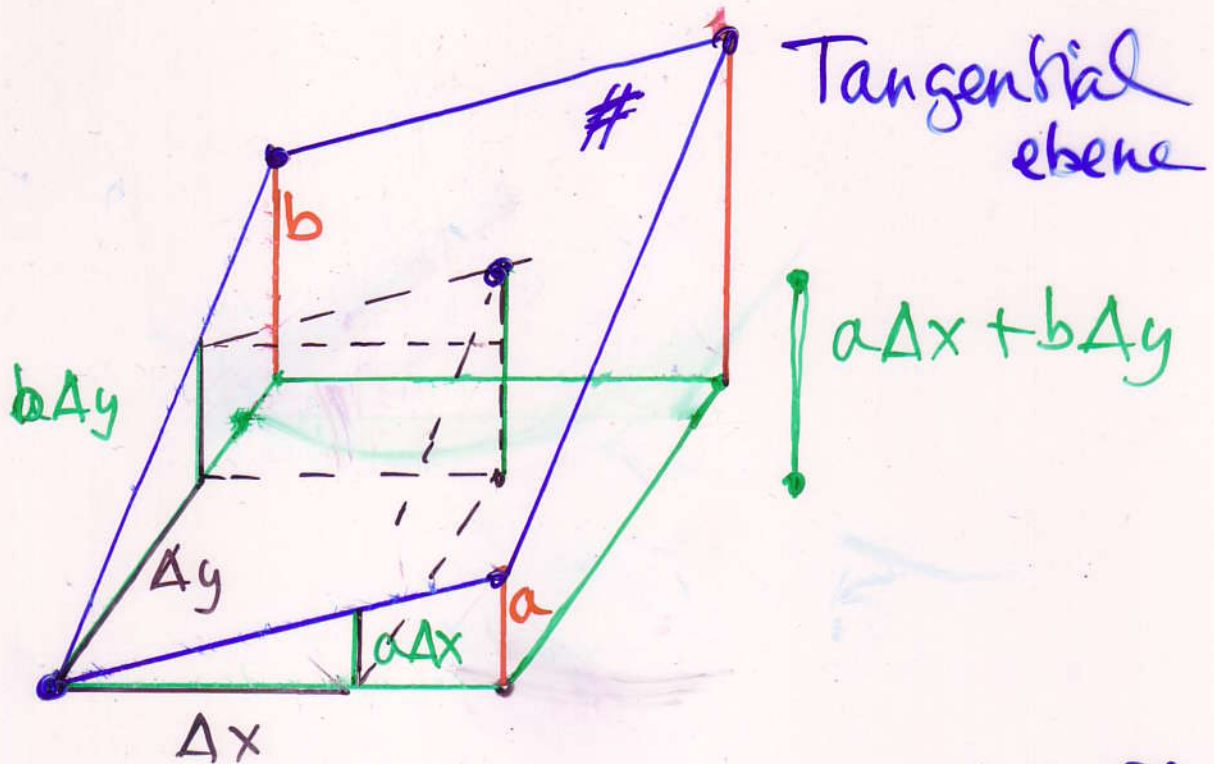 Tangential
ebene
#
b
aΔx + bΔy
bΔy
Δy
a
aΔx
Δx